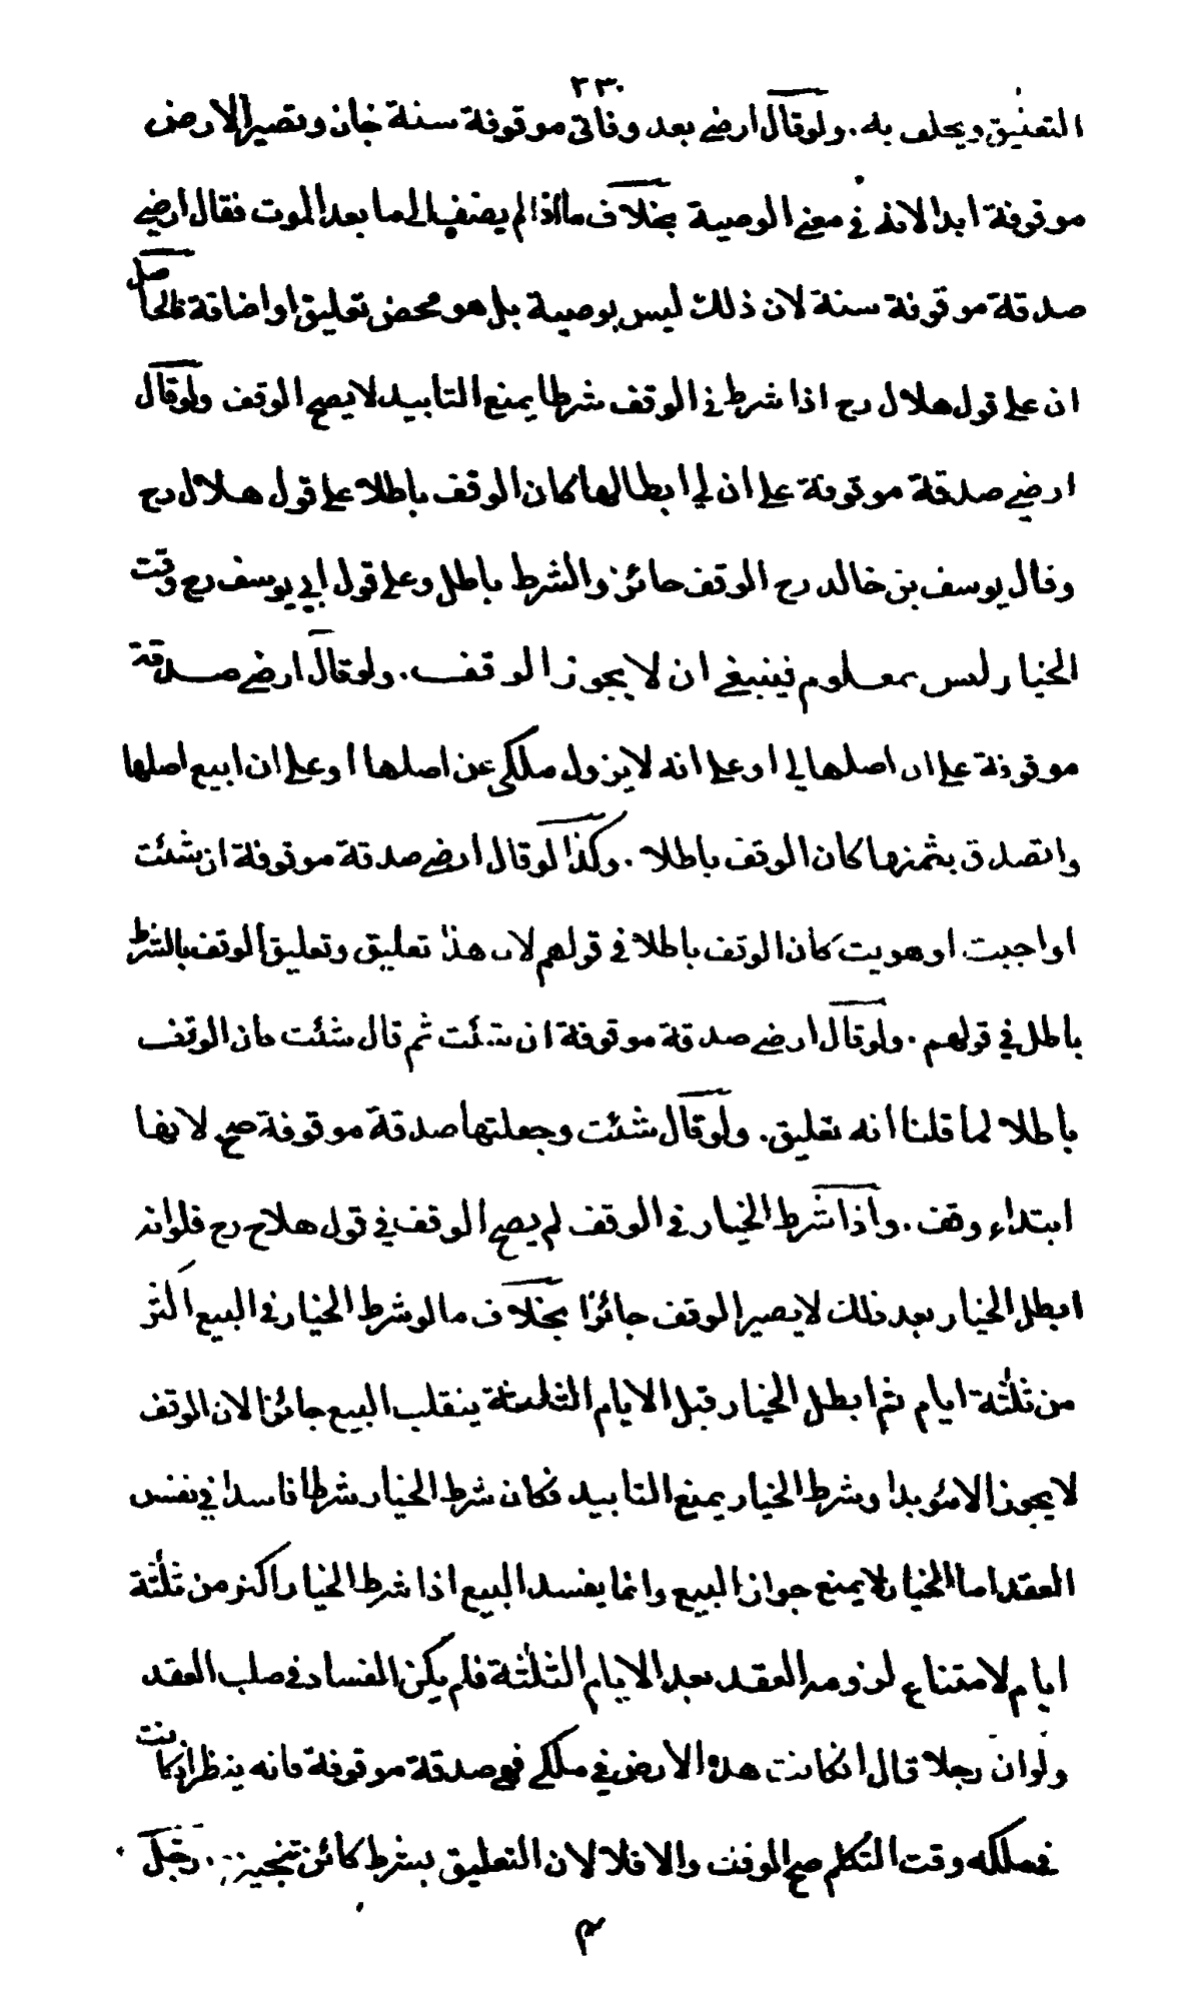 ٢٣٠
التعليق ويحلف به . ولو قال ارضي بعد وفاتي موقوفة سنة جاز وتصير الارض
موقوفة ابدا لانه في معنى الوصية بخلاف ما اذا لم يضف الى ما بعد الموت فقال ارضي
صدقة موقوفة سنة لان ذلك ليس بوصية بل هو محض تعليق او اضافة فالحاصل
ان على قول هلال رح اذا شرط في الوقف شرطا يمنع التابيد لا يصح الوقف ولو قال
ارضي صدقة موقوفة على ان لي ابطالها كان الوقف باطلا على قول هلال رح
وقال يوسف بن خالد رح الوقف جائز والشرط باطل وعلى قول ابي يوسف رح وقت
الخيار ليس بمعلوم فينبغي ان لا يجوز الوقف . ولو قال ارضي صدقة
موقوفة على ان اصلها لي او على انه لا يزول ملكي عن اصلها او على ان ابيع اصلها
واتصدق بثمنها كان الوقف باطلا . وكذا لو قال ارضي صدقة موقوفة ان شئت
او احببت او هويت كان الوقف باطلا في قولهم لان هذا تعليق وتعليق الوقف بالشرط
باطل في قولهم . ولو قال ارضي صدقة موقوفة ان شئت ثم قال شئت كان الوقف
باطلا لما قلنا انه تعليق . ولو قال شئت وجعلتها صدقة موقوفة صح لانها
ابتداء وقف . واذا شرط الخيار في الوقف لم يصح الوقف في قول هلاح رح فلو انه
ابطل الخيار بعد ذلك لا يصير الوقف جائزا بخلاف ما لو شرط الخيار في البيع اكثر
من ثلثة ايام ثم ابطل الخيار قبل الايام الثلثة ينقلب البيع جائزا لان الوقف
لا يجوز الا مؤبدا وشرط الخيار يمنع التابيد فكان شرط الخيار شرطا فاسدا في نفس
العقد اما الخيار لا يمنع جواز البيع وانما يفسد البيع اذا شرط الخيار اكثر من ثلثة
ايام لامتناع لزوم العقد بعد الايام الثلثة فلم يكن الفساد في صلب العقد
ولو ان رجلا قال ان كانت هذه الارض في ملكي فهي صدقة موقوفة فانه ينظر ان كانت
في ملكه وقت التكلم صح الوقف والا فلا لان التعليق بشرط كائن تنجيز . رجل
م